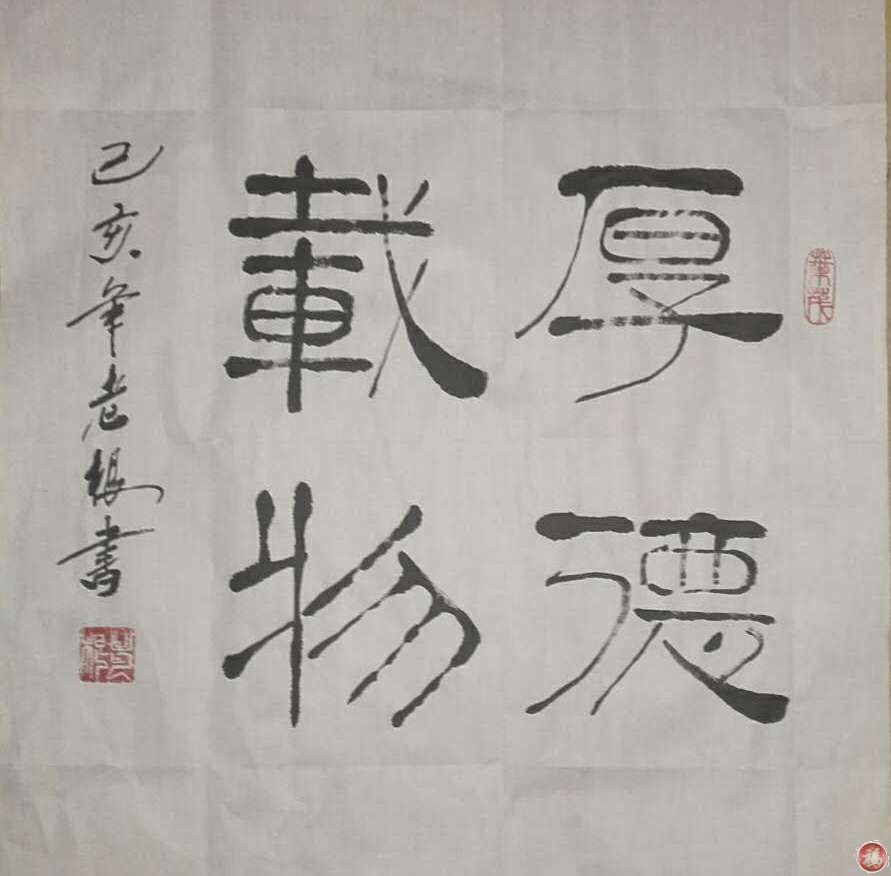 厚德
載物
己亥年老根書